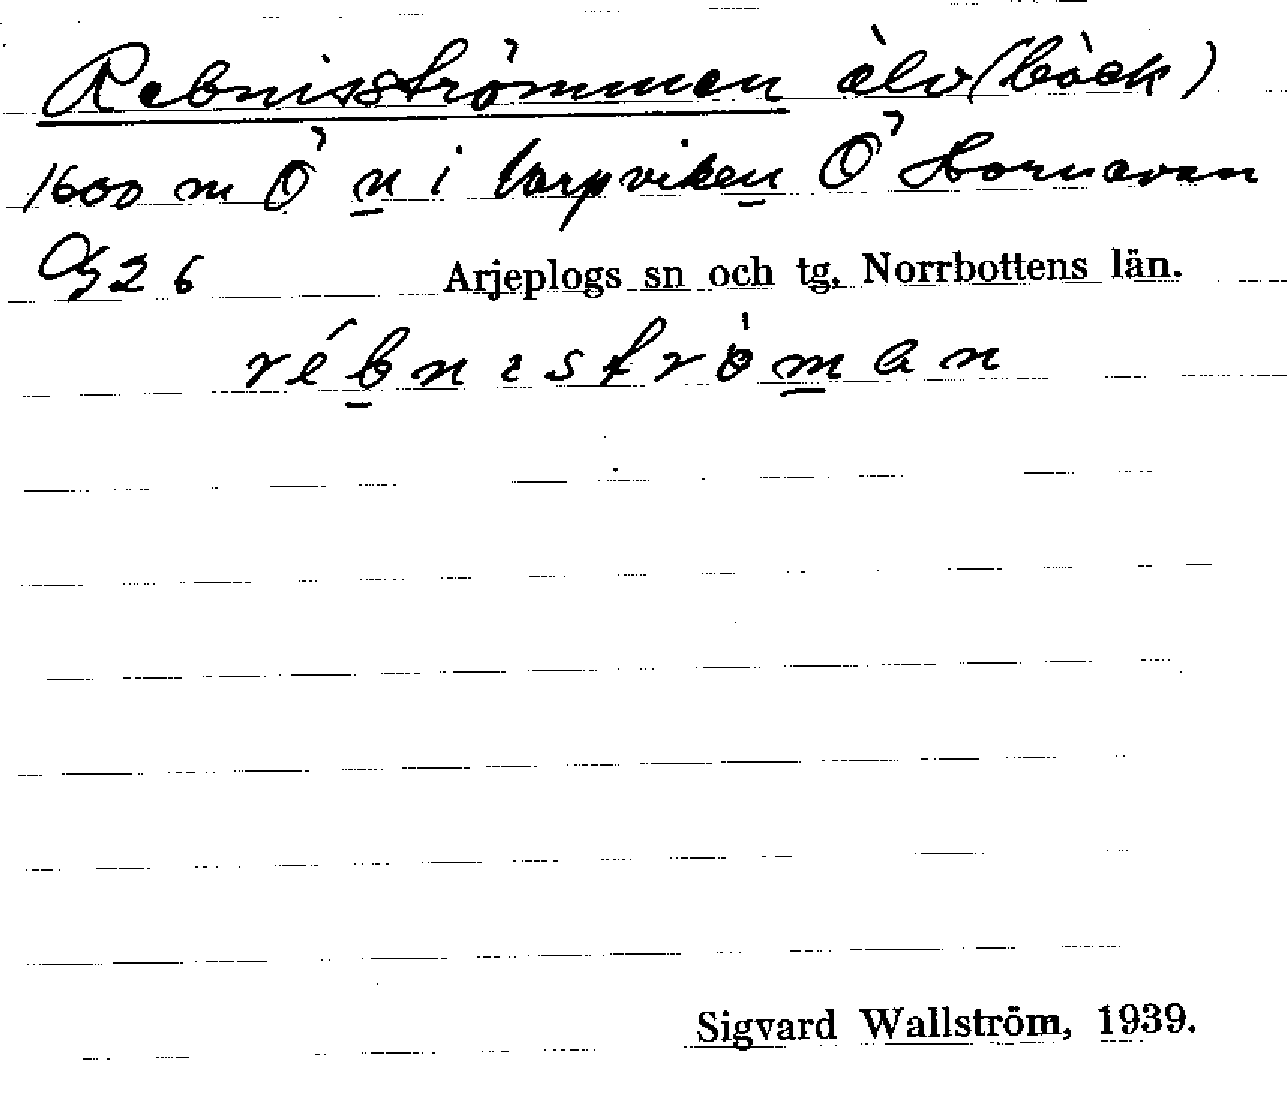 Rebnisströmmen älv (bäck)
1600 m Ö n i Varpviken Ö Hornavan
26 Arjeplogs sn och tg. Norrbottens län.
rébnɩströ̀man
Sigvard Wallström, 1939.